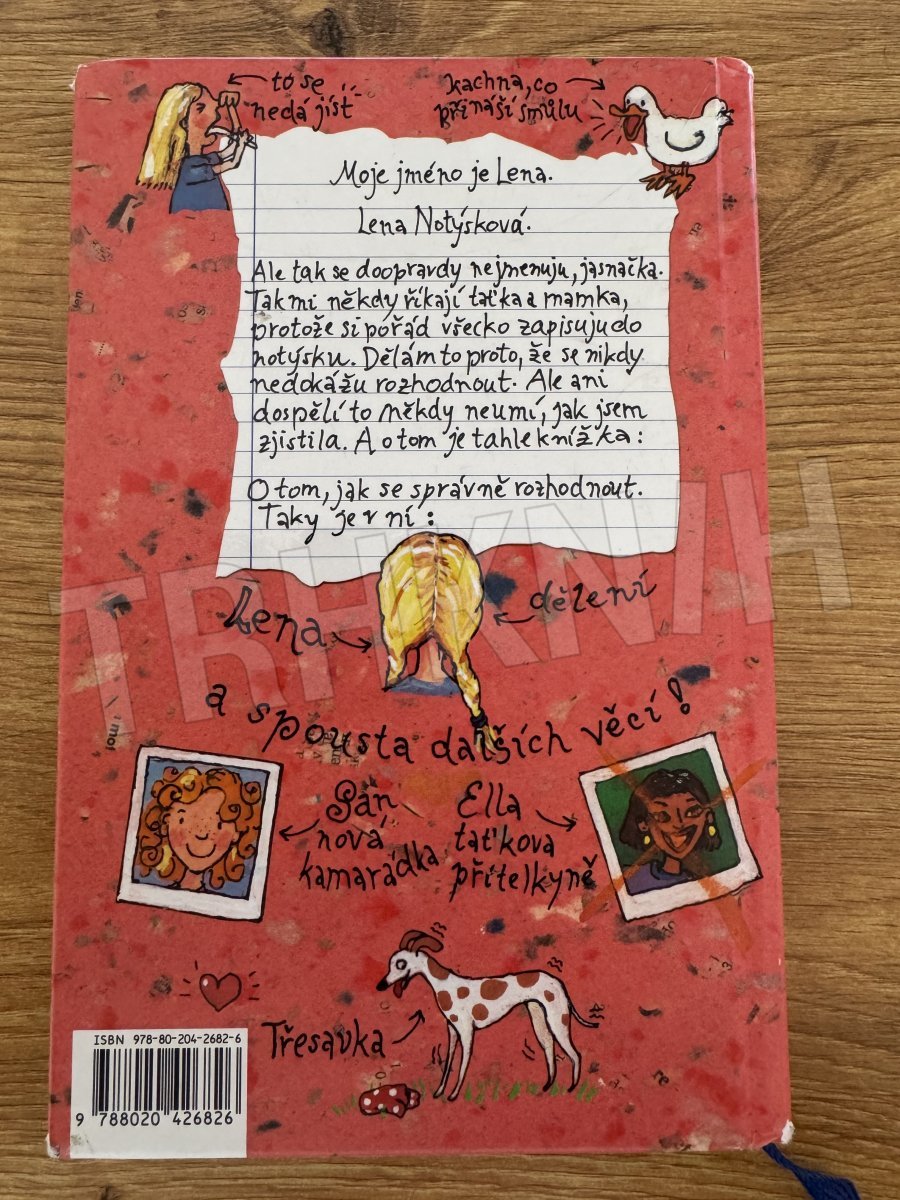 to se
nedá jíst
kachna, co
přináší smůlu
Moje jméno je Lena.
Lena Notýsková.
Ale tak se doopravdy nejmenuju, jasnačka.
Tak mi někdy říkají taťka a mamka,
protože si pořád všecko zapisuju do
notýsku. Dělám to proto, že se nikdy
nedokážu rozhodnout. Ale ani
dospělí to někdy neumí, jak jsem
zjistila. A o tom je tahle knížka:
O tom, jak se správně rozhodnout.
Taky je v ní:
Lena
dělení
a spousta dalších věcí!
nová
kamarádka
Ella
taťkova
přítelkyně
Třesavka
ISBN 978-80-204-2682-6
9 788020 426826
TRHKNIH